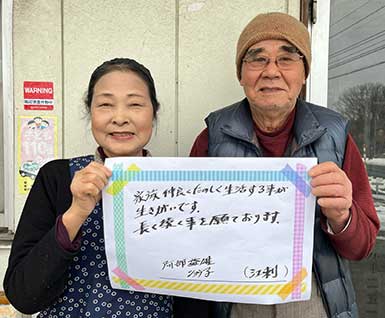 WARNING
110
家族仲良くたのしく生活する事が
生きがいです。
長く続く事を願っております。
阿部
(江刺)